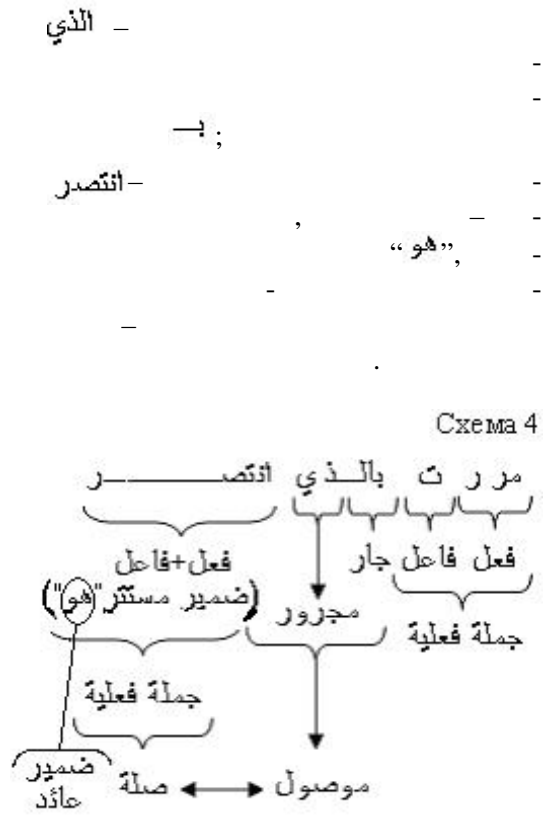 – الذي
-
-
بـ ;
- انتصر –
- – ,
- ,"هو"
- -
–
.
Схема 4
مر ر ت بالــذي انتصــــــر
فعل فاعل جار فعل+فاعل
(ضمير مستتر"هو") مجرور جملة فعلية
جملة فعلية
موصول صلة ضمير عائد